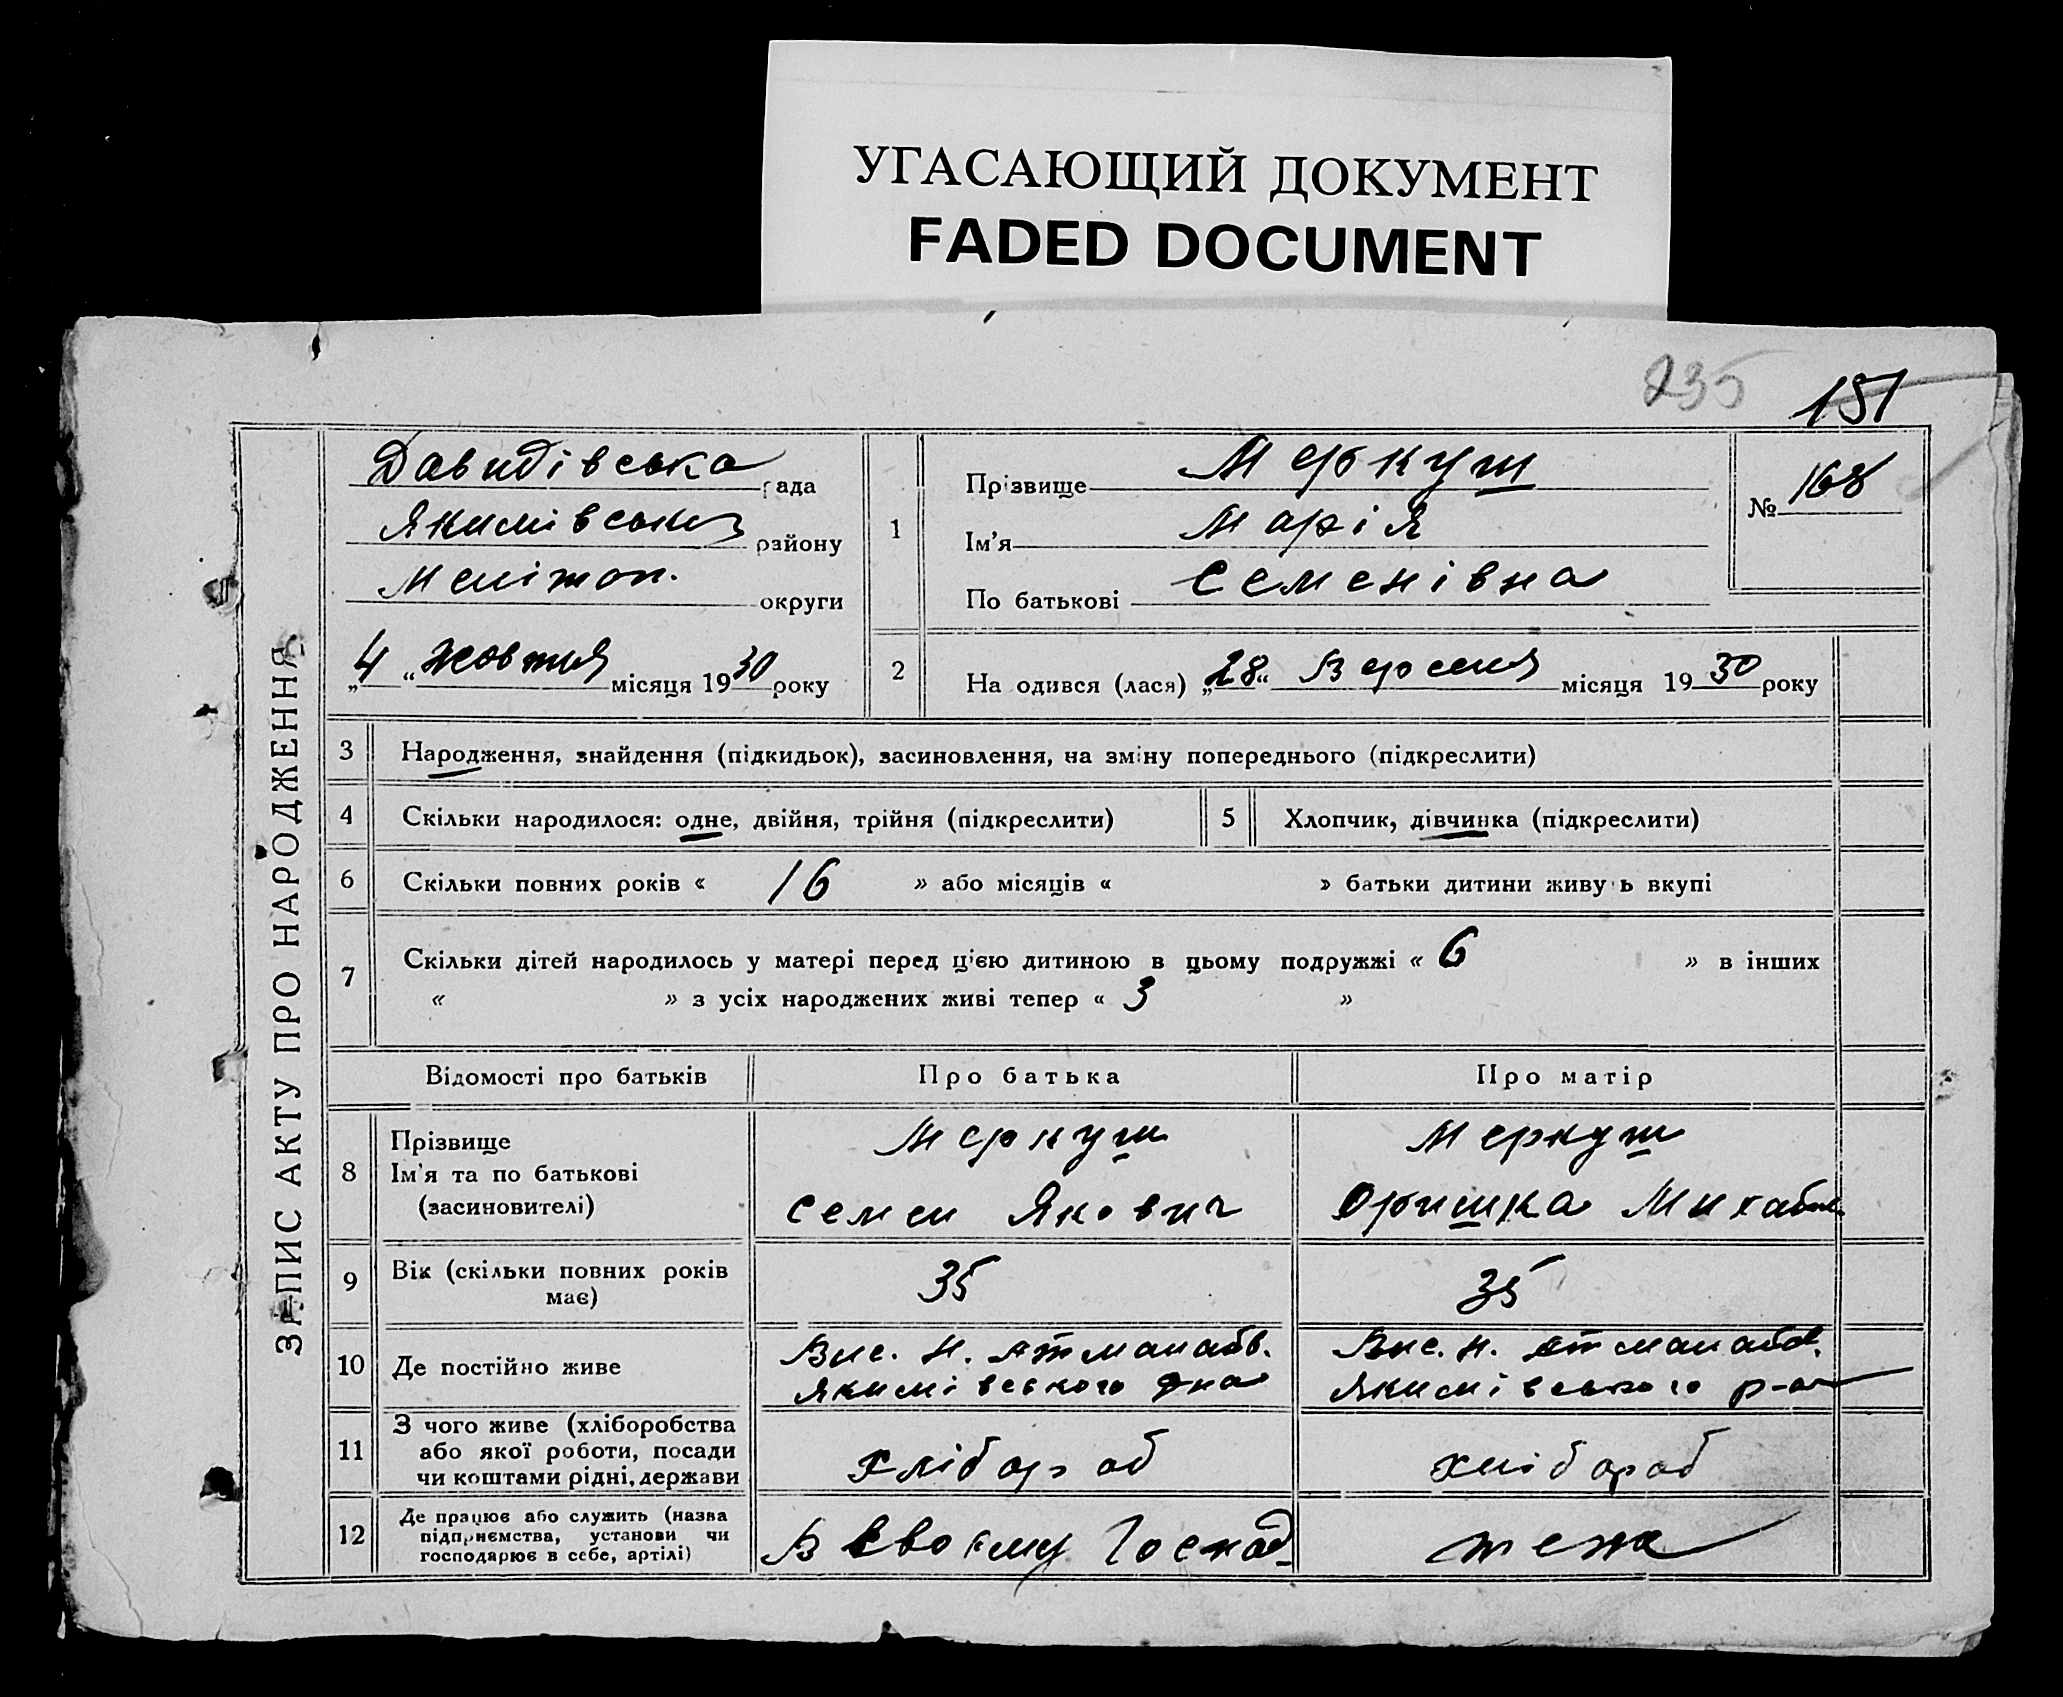 УГАСАЮЩИЙ ДОКУМЕНТ
FADED DOCUMENT
235 151
ЗАПИС АКТУ ПРО НАРОДЖЕННЯ
Давидівська рада
Якимівськ району
Мелітоп. округи
„4“ жовтня місяця 1930 року
1 Прізвище Меркуш
Ім'я Марія
По батькові Семенівна
№ 168
2 На одився (лася) „28“ Вересня місяця 1930 року
3 Народження, знайдення (підкидьок), засиновлення, на зміну попереднього (підкреслити)
4 Скільки народилося: одне, двійня, трійня (підкреслити) 5 Хлопчик, дівчинка (підкреслити)
6 Скільки повних років « 16 » або місяців « » батьки дитини живуть вкупі
7 Скільки дітей народилось у матері перед цією дитиною в цьому подружжі « 6 » в інших
« » з усіх народжених живі тепер « 3 »
Відомості про батьків Про батька Про матір
8 Прізвище
Ім'я та по батькові
(засиновителі)
Меркуш
Семен Якович
Меркуш
Оришка
9 Вік (скільки повних років
має)
35
35
10 Де постійно живе
Вис. Н. Атманаѣв.
Якимівського
Вис. Н. Атманаѣв.
Якимівського р-а
11 З чого живе (хліборобства
або якої роботи, посади
чи коштами рідні, держави
хлібороб
хлібороб
12 Де працює або служить (назва
підприємства, установи чи
господарює в себе, артілі)
В своєму Господ.
теж